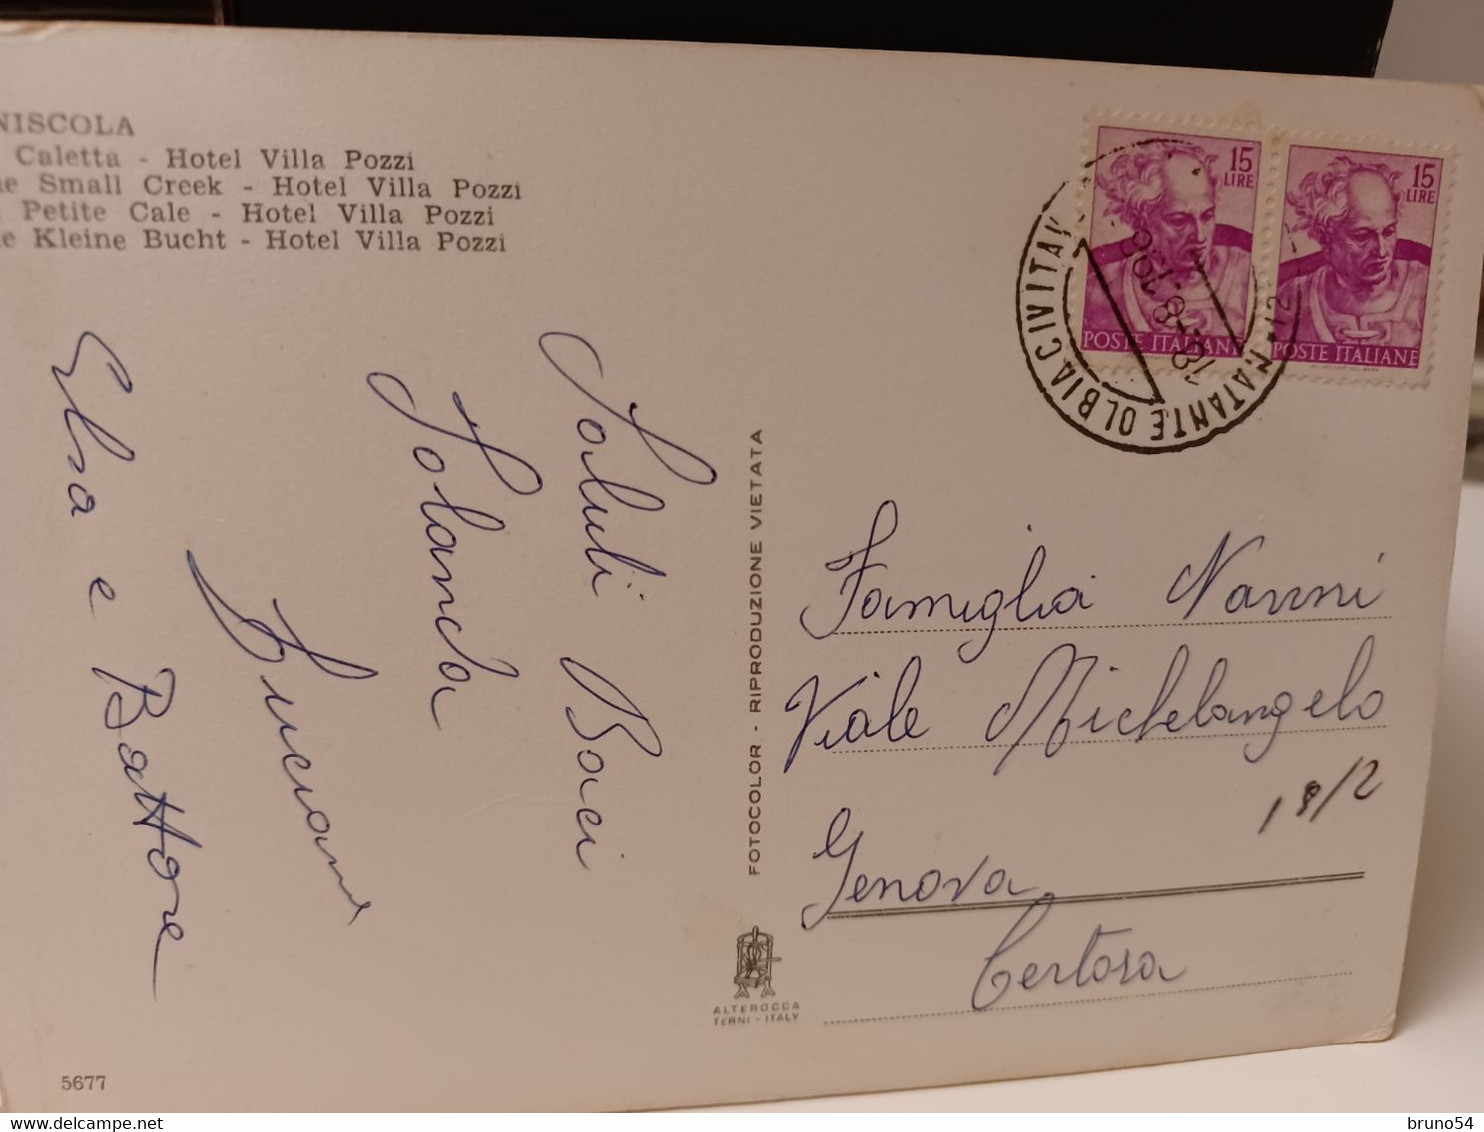 NISCOLA
Caletta - Hotel Villa Pozzi
e Small Creek - Hotel Villa Pozzi
Petite Cale - Hotel Villa Pozzi
e Kleine Bucht - Hotel Villa Pozzi
15
LIRE
POSTE ITALIANE
15
LIRE
POSTE ITALIANE
NATANTE OLBIA CIVITAV
Saluti Baci
Jolanda
Luciana
Elsa e Battore
FOTOCOLOR - RIPRODUZIONE VIETATA
Famiglia Nanni
Viale Michelangelo
18/2
Genova
Certosa
ALTEROCCA
TERNI - ITALY
5677
delcampe.net
bruno54